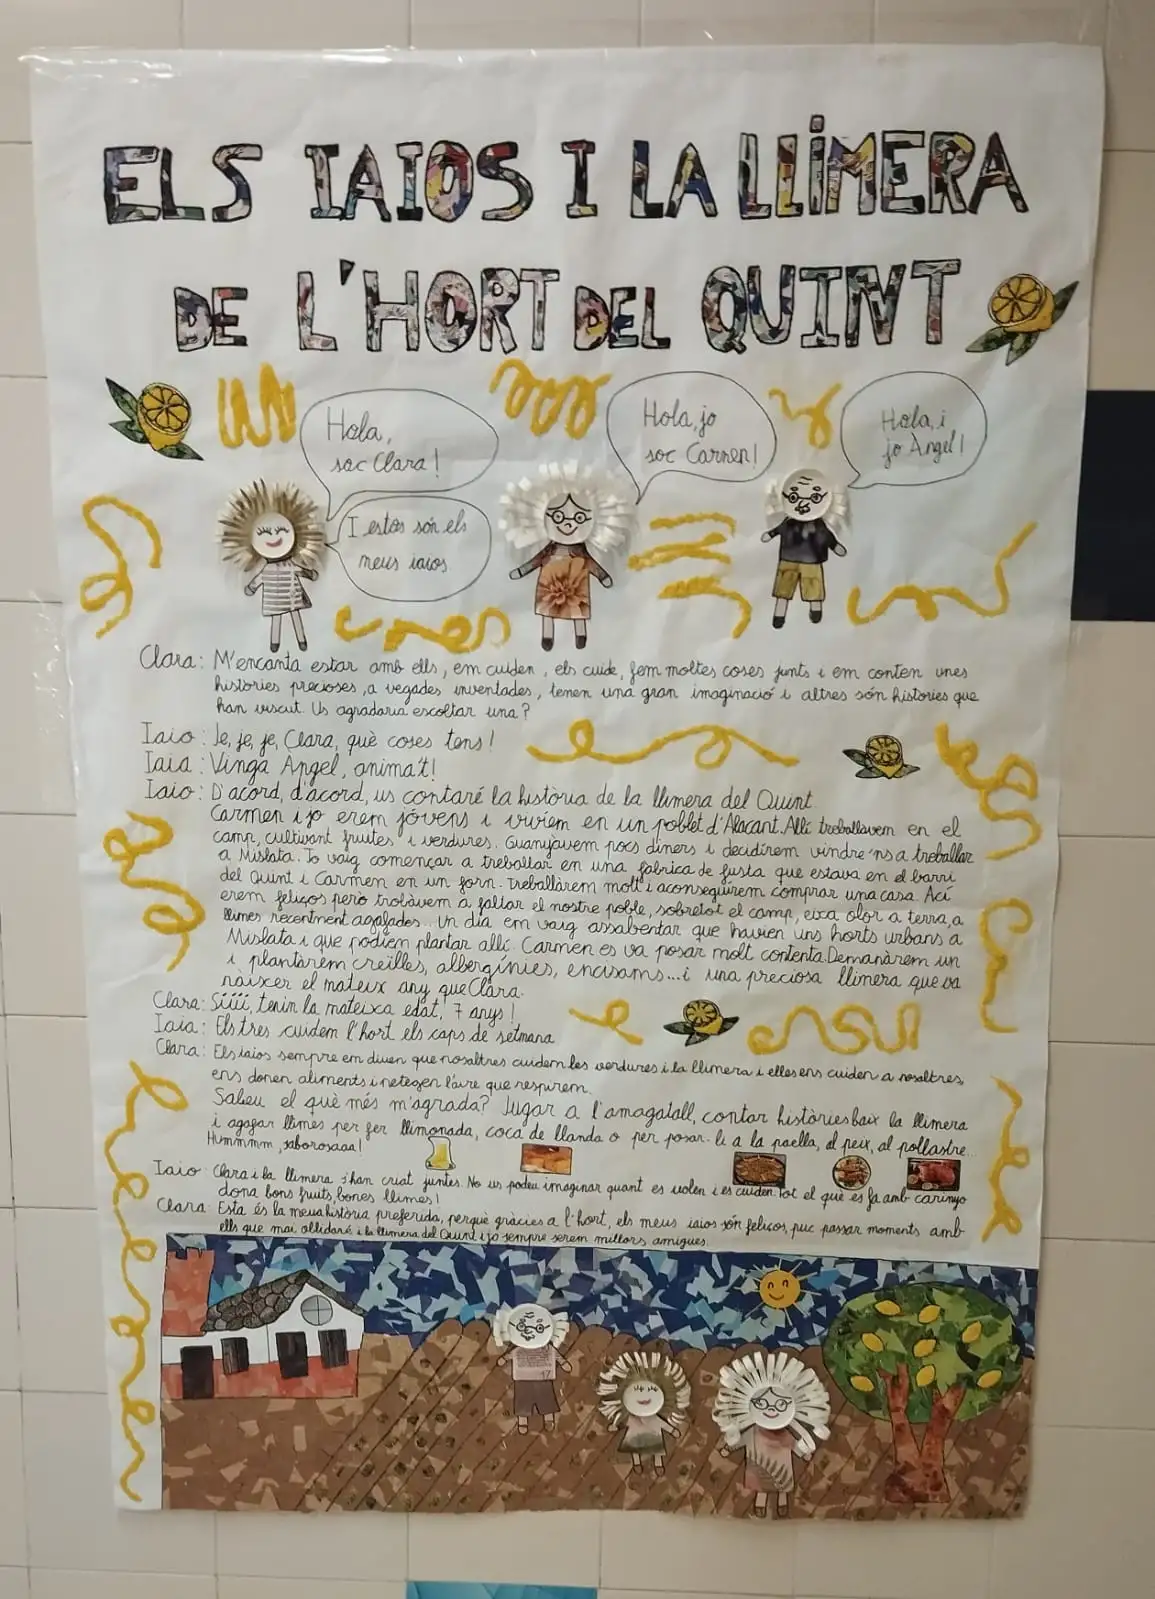 ELS IAIOS I LA LLIMERA
DE L'HORT DEL QUINT
Hola,
soc Clara!
I estos són els
meus iaios
Hola, jo
soc Carmen!
Hola, i
jo Àngel!
Clara: M'encanta estar amb ells, em cuiden, els cuide, fem moltes coses junts i em conten unes
històries precioses, a vegades inventades, tenen una gran imaginació i altres són històries que
han viscut. Us agradaria escoltar una?
Iaio: Je, je, je, Clara, què coses tens!
Iaia: Vinga Àngel, anima't!
Iaio: D'acord, d'acord, us contaré la història de la llimera del Quint.
Carmen i jo erem jóvens i vivíem en un poblet d'Alacant. Allí treballàvem en el
camp, cultivant fruites i verdures. Guanyàvem pocs diners i decidírem vindre'ns a treballar
a Mislata. Jo vaig començar a treballar en una fàbrica de fusta que estava en el barri
del Quint i Carmen en un forn. Treballàrem molt i aconseguírem comprar una casa. Ací
erem feliços però trobàvem a faltar el nostre poble, sobretot el camp, eixa olor a terra, a
llimes recentment agafades... Un dia em vaig assabentar que havien uns horts urbans a
Mislata i que podíem plantar allí. Carmen es va posar molt contenta. Demanàrem un
i plantàrem creïlles, albergínies, encisams...i una preciosa llimera que va
nàixer el mateix any que Clara.
Clara: Síííí, tenim la mateixa edat, 7 anys!
Iaia: Els tres cuidem l'hort els caps de setmana
Clara: Els iaios sempre em diuen que nosaltres cuidem les verdures i la llimera i elles ens cuiden a nosaltres,
ens donen aliments i netegen l'aire que respirem.
Sabeu el què més m'agrada? Jugar a l'amagatall, contar històries baix la llimera
i agafar llimes per fer llimonada, coca de llanda o per posar-li a la paella, al peix, al pollastre...
Hummmm, saborosaaa!
Iaio: Clara i la llimera s'han criat juntes. No us podeu imaginar quant es volen i es cuiden. Tot el què es fa amb carinyo
dona bons fruits, bones llimes!
Clara: Esta és la meua història preferida, perquè gràcies a l'hort, els meus iaios són feliços, puc passar moments amb
ells que mai oblidaré i la llimera del Quint i jo sempre serem millors amigues.
17